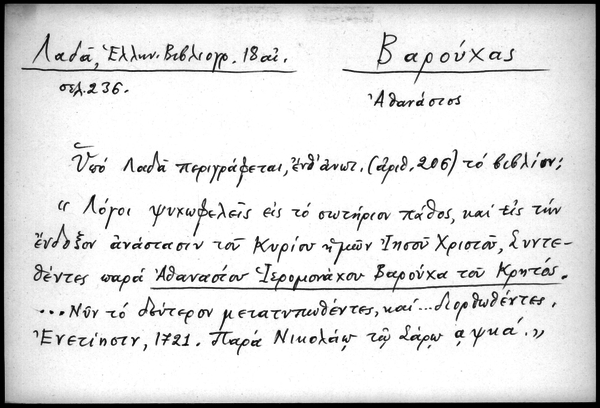 Λαδᾶ, Ἑλλην. Βιβλιογρ. 18 αἰ.
Βαρούχας
σελ. 236.
Ἀθανάσιος
Ὑπό Λαδᾶ περιγράφεται, ἔνθ' ἀνωτ. (ἀριθ. 206) τό βιβλίον:
“ Λόγοι ψυχωφελεῖς εἰς τό σωτήριον πάθος, καί εἰς τήν
ἔνδοξον ἀνάστασιν τοῦ Κυρίου ἡμῶν Ἰησοῦ Χριστοῦ, Συντε-
θέντες παρά Ἀθανασίου Ἱερομονάχου Βαρούχα τοῦ Κρητός.
... Νῦν τό δεύτερον μετατυπωθέντες, καί ... διορθωθέντες.
Ἐνετίῃσιν, 1721. Παρά Νικολάῳ τῷ Σάρῳ ͵αψκά. ”